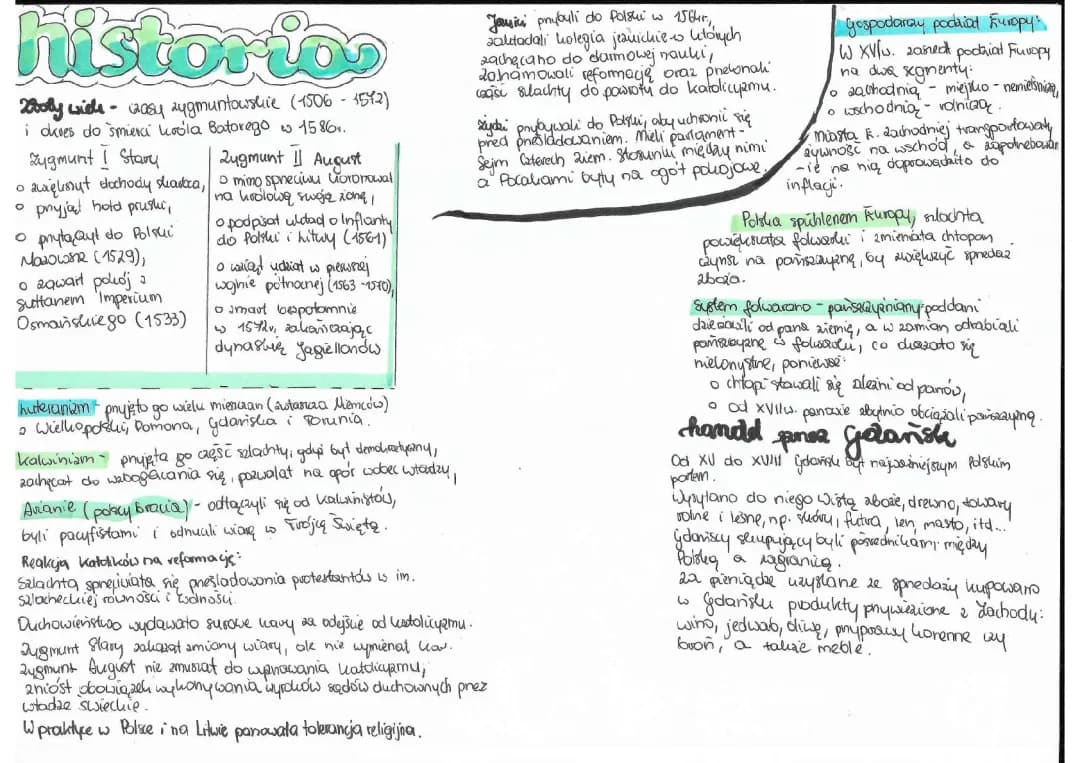 historia
Złoty wiek - czasy zygmuntowskie (1506 - 1572)
i okres do śmierci króla Batorego w 1586r.
Zygmunt I Stary
o zwiększył dochody skarbca,
o przyjął hołd pruski,
o przyłączył do Polski
Mazowsze (1529),
o zawarł pokój z
sułtanem Imperium
Osmańskiego (1533)
Zygmunt II August
o mimo sprzeciwu koronował
na królową swoją żonę,
o podpisał układ o Inflanty
do Polski i Litwy (1561)
o wziął udział w pierwszej
wojnie północnej (1563 - 1570),
o zmarł bezpotomnie
w 1572r, zakańczając
dynastię Jagiellonów
Luteranizm - przyjęto go wielu mieszczan (zwłaszcza Niemców)
z Wielkopolski, Pomorza, Gdańska i Torunia.
Kalwinizm - przyjęta go część szlachty, gdyż był demokratyczny,
zachęcał do wzbogacania się, pozwalał na opór wobec władzy,
Arianie (polscy bracia) - odłączyli się od kalwinistów,
byli pacyfistami i odrzucali wiarę w Trójcę Świętą.
Reakcja katolików na reformację:
Szlachta sprzeciwiała się prześladowania protestantów w im.
szlacheckiej równości i wolności.
Duchowieństwo wydawało surowe kary za odejście od katolicyzmu.
Zygmunt Stary zakazał zmiany wiary, ale nie wymierzał kar.
Zygmunt August nie zmuszał do wyznawania katolicyzmu,
zniósł obowiązek wykonywania wyroków sądów duchownych przez
władze świeckie.
W praktyce w Polsce i na Litwie panowała tolerancja religijna.
Jezuici przybyli do Polski w 1564r,
zakładali kolegia jezuickie w których
zachęcano do darmowej nauki,
zahamowali reformację oraz przekonali
część szlachty do powrotu do katolicyzmu.
Żydzi przybywali do Polski, aby uchronić się
przed prześladowaniem. Mieli parlament -
Sejm Czterech Ziem. Stosunki między nimi
a Polakami były na ogół pokojowe.
Gospodarczy podział Europy:
W XVIw. zaszedł podział Europy
na dwa segmenty:
o zachodnią - miejsko - rzemieślniczą,
o wschodnią - rolniczą.
Miasta E. zachodniej transportowały
żywność na wschód, a zapotrzebowan
-ie na nią doprowadziło do
inflacji.
Polska spichlerzem Europy, szlachta
powiększała folwarki i zmieniała chłopom
czynsz na pańszczyznę, by zwiększyć sprzedaż
zboża.
System folwarczno - pańszczyźniany poddani
dzierżawili od pana ziemię, a w zamian odrabiali
pańszczyznę w folwarku, co okazało się
niekorzystne, ponieważ:
o chłopi stawali się zależni od panów,
o od XVIIw. panowie zbytnio obciążali pańszczyzną.
handel przez Gdańsk
Od XV do XVIII Gdańsk był najważniejszym Polskim
portem.
Wysyłano do niego Wisłą zboże, drewno, towary
rolne i leśne, np. skóry, futra, len, masło, itd...
Gdańscy skupujący byli pośrednikami między
Polską a zagranicą.
Za pieniądze uzyskane ze sprzedaży kupowano
w Gdańsku produkty przywiezione z Zachodu:
wino, jedwab, oliwę, przyprawy korzenne czy
broń, a także meble.